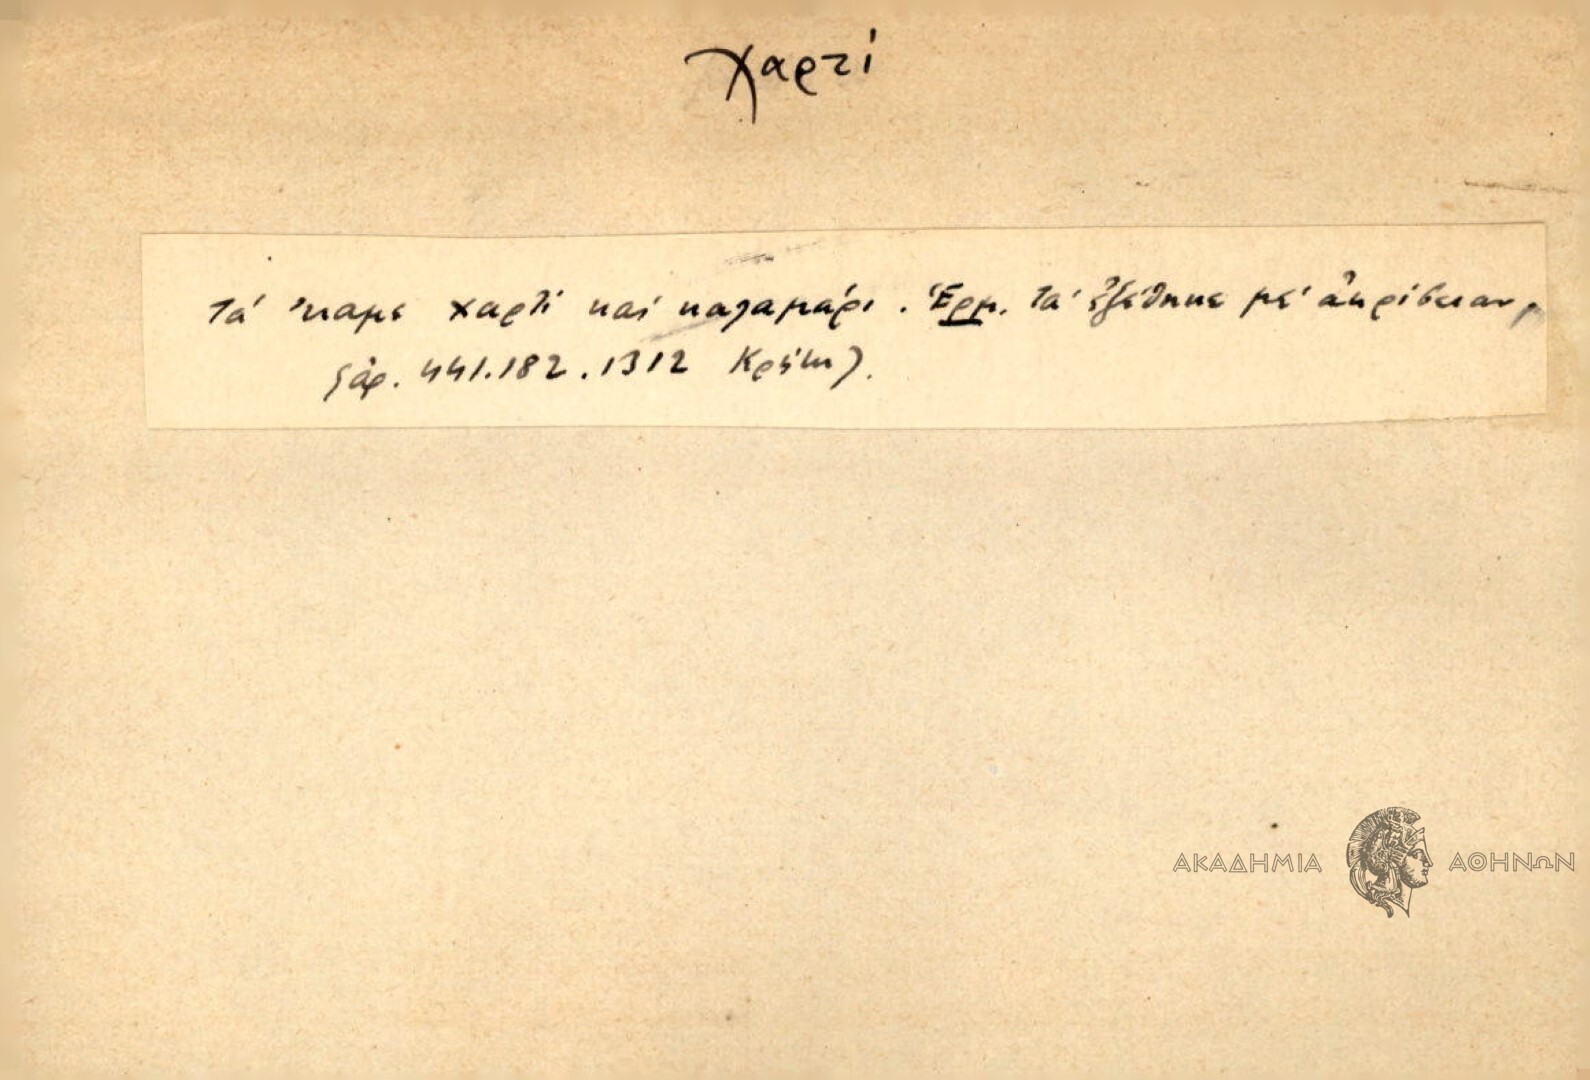 Χαρτί
Τά 'καμε χαρτί καί καλαμάρι. Ἑρμ. Τά ἐξέθηκε μέ ἀκρίβειαν,
(ἀρ. 441.182.1312 Κρήτη).
ΑΚΑΔΗΜΙΑ ΑΘΗΝΩΝ